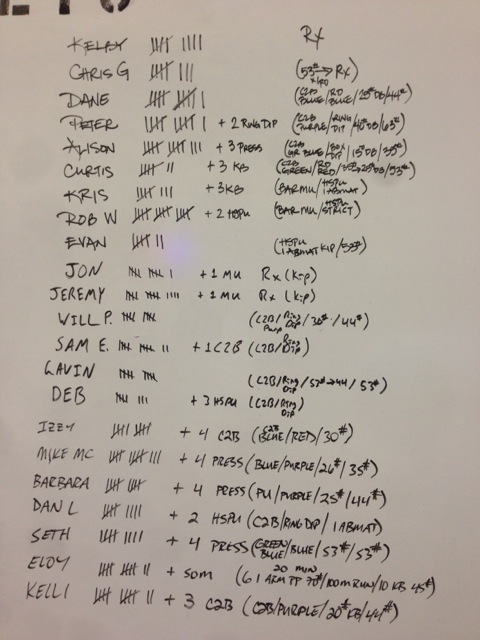 KELBY 𝍸 IIII Rx
CHRIS G 𝍸 III (53# → Rx)
DANE 𝍸 𝍸 I (C2B BLUE / RD BLUE / 25# DB / 44#)
PETER 𝍸 𝍸 I + 2 RING DIP (C2B PURPLE / RING DIP / 40# DB / 63#)
ALISON 𝍸 𝍸 III + 3 PRESS (C2B GR BLUE / BOX DIP / 15# DB / 35#)
CURTIS 𝍸 II + 3 KB (C2B GREEN / RD RED / / 53#)
KRIS 𝍸 III + 3KB (BAR MU / HSPU 1 ABMAT)
ROB W 𝍸 𝍸 𝍸 + 2 HSPU (BAR MU / HSPU STRICT)
EVAN 𝍸 II (HSPU 1 ABMAT KIP / 53#)
JON 𝍸 𝍸 I + 1 MU Rx (Kip)
JEREMY 𝍸 𝍸 IIII + 1 MU Rx (Kip)
WILL P. 𝍸 𝍸 (C2B / Ring Dip Purp / 30# / 44#)
SAM E. 𝍸 𝍸 II + 1 C2B (C2B / Ring Dip)
GAVIN 𝍸 𝍸 (C2B / Ring Dip / 53# → 44 / 53#)
DEB 𝍸 III + 3 HSPU (C2B / Ring Dip)
IZZY 𝍸 𝍸 + 4 C2B (C2B BLUE / RED / 30#)
MIKE MC 𝍸 𝍸 III + 4 PRESS (BLUE / PURPLE / 26# / 35#)
BARBARA 𝍸 𝍸 + 4 PRESS (PU / PURPLE / 25# / 44#)
DAN L 𝍸 IIII + 2 HSPU (C2B / RING DIP / 1 ABMAT)
SETH 𝍸 IIII + 4 PRESS (GREEN BLUE / BLUE / 53# / 53#)
ELOY 𝍸 𝍸 II + 50m 20 MIN (6 1 ARM PP 70# / 100m RUN / 10 KB 45#)
KELLI 𝍸 𝍸 II + 3 C2B (C2B / PURPLE / 20# KB / 44#)